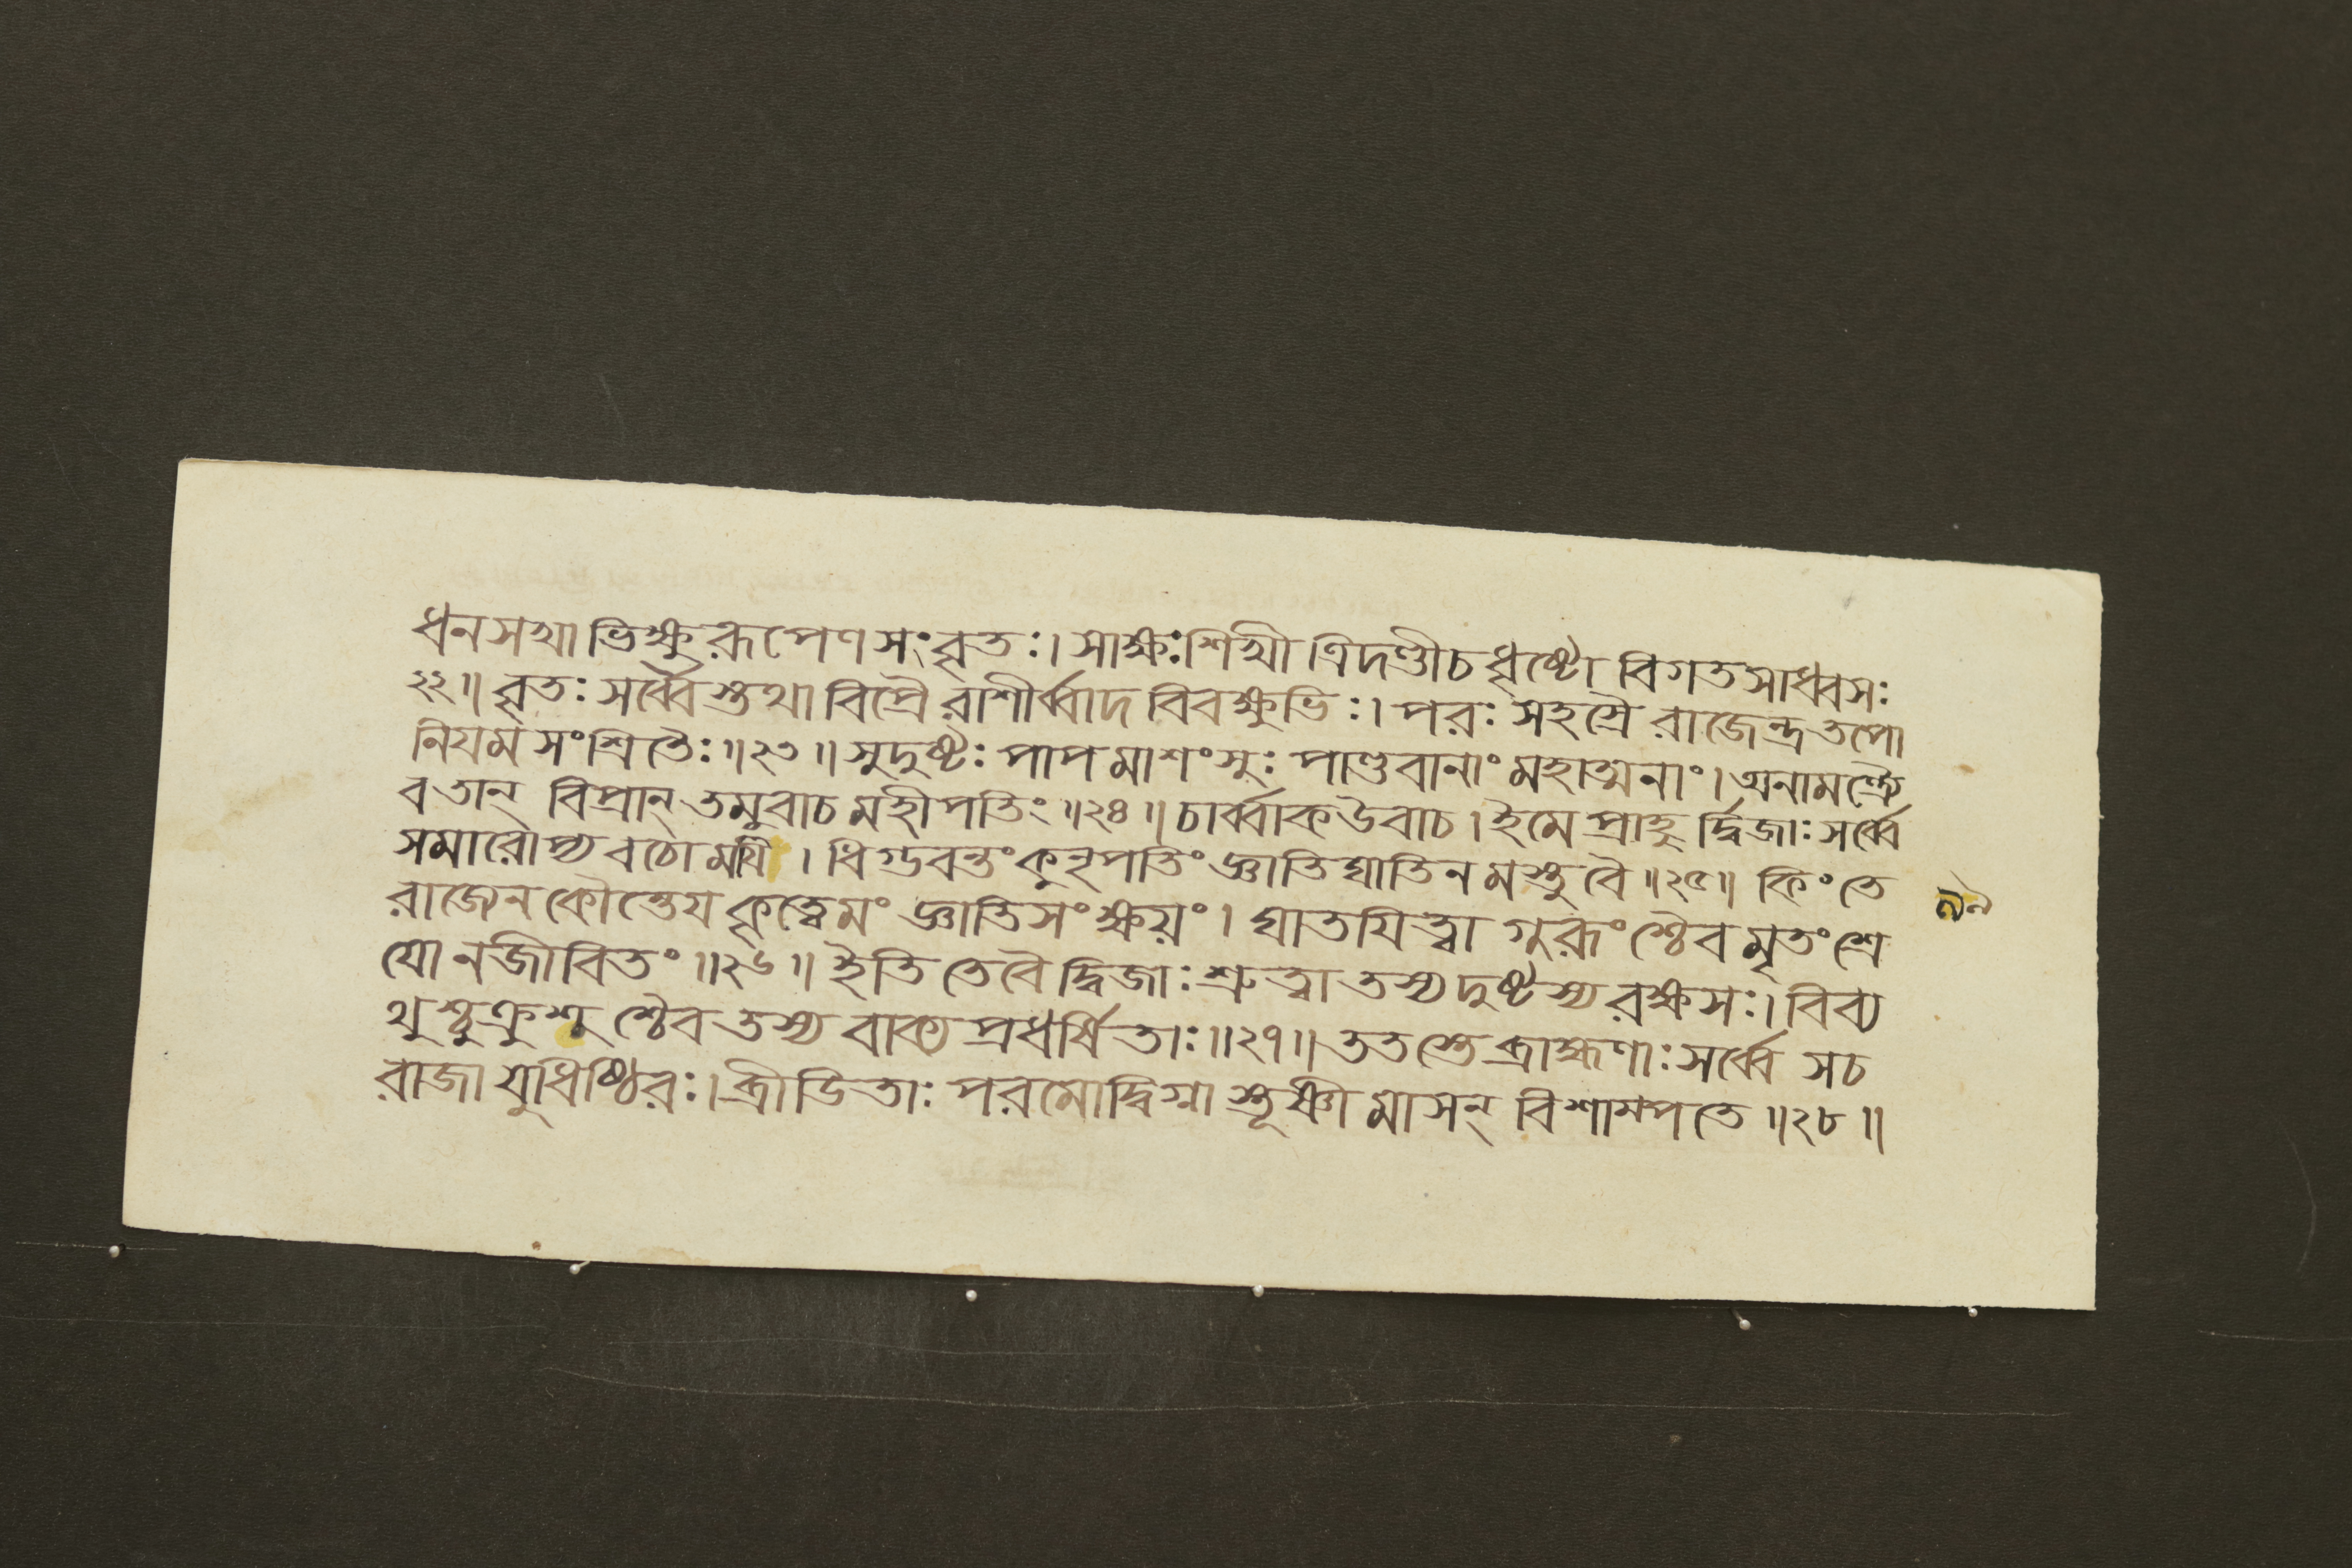 ধনসখা ভিক্ষুরূপেণ সংবৃতঃ। সাক্ষঃ শিখী ত্রিদণ্ডীচ ধৃষ্টো বিগতসাধ্বসঃ
২২॥ বৃতঃ সর্ব্বৈস্তথা বিপ্রৈরাশীর্ব্বাদ বিবক্ষুভিঃ। পরঃ সহস্রৈ রাজেন্দ্র তপো
নিযমসংশ্রিতৈঃ॥২৩॥ সুদুষ্টঃ পাপমাশংসুঃ পাণ্ডবানাং মহাত্মনাং। অনামন্ত্র্যৈ
বতান্ বিপ্রান্ তমুবাচ মহীপতিং॥২৪॥ চার্ব্বাকউবাচ। ইমে প্রাহুর্দ্বিজাঃ সর্ব্বে
সমারোপ্য বচো ময়ি। ধিগ্ভবন্তং কুনৃপতিং জ্ঞাতিঘাতিনমস্তু বৈ॥২৫॥ কিং তে
রাজেন কৌন্তেয কৃত্বেমং জ্ঞাতিসংক্ষয়ং। ঘাতযিত্বা গুরূংশ্চৈব মৃতং শ্রে
যো ন জীবিতং॥২৬॥ ইতি তে বৈ দ্বিজাঃ শ্রুত্বা তস্য দুষ্টস্য রক্ষসঃ। বিব্য
থুশ্চুক্রুশুশ্চৈব তস্য বাক্যপ্রধর্ষিতাঃ॥২৭॥ ততস্তে ব্রাহ্মণাঃ সর্ব্বে সচ
রাজা যুধিষ্ঠিরঃ। ব্রীডিতাঃ পরমোদ্বিগ্নাস্তূষ্ণীমাসন্ বিশাম্পতে॥২৮॥